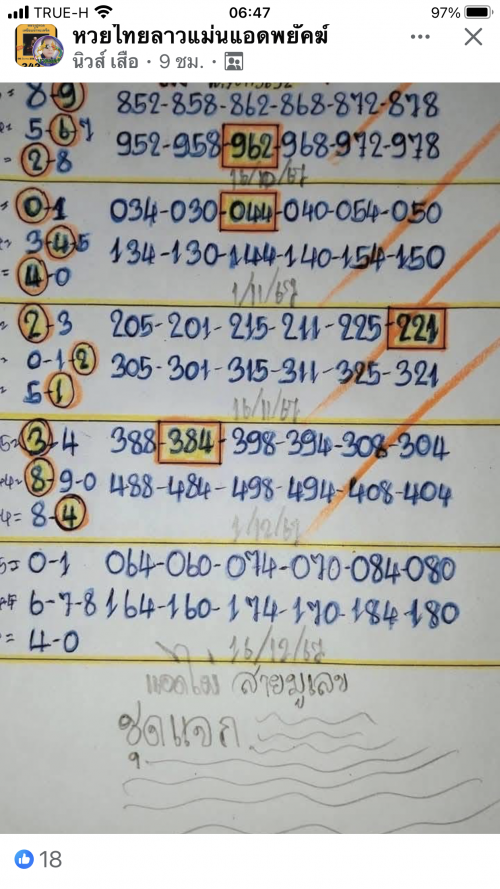 TRUE-H 06:47 97%
หวยไทยลาวแม่นแอดพยัคฆ์
นิวส์ เสือ · 9 ชม. ·
= 8-9 852-858-862-868-872-878
5-6-7 952-958-962-968-972-978
= 2-8
16/10/67
0-1 034-030-044-040-054-050
3-4-5 134-130-144-140-154-150
= 4-0
1/11/67
2-3 205-201-215-211-225-221
0-1-2 305-301-315-311-325-321
5-1
16/11/67
3-4 388-384-398-394-308-304
8-9-0 488-484-498-494-408-404
= 8-4
1/12/67
0-1 064-060-074-070-084-080
6-7-8 164-160-174-170-184-180
= 4-0
16/12/67
สายมูเลข
ชุดแจก
18